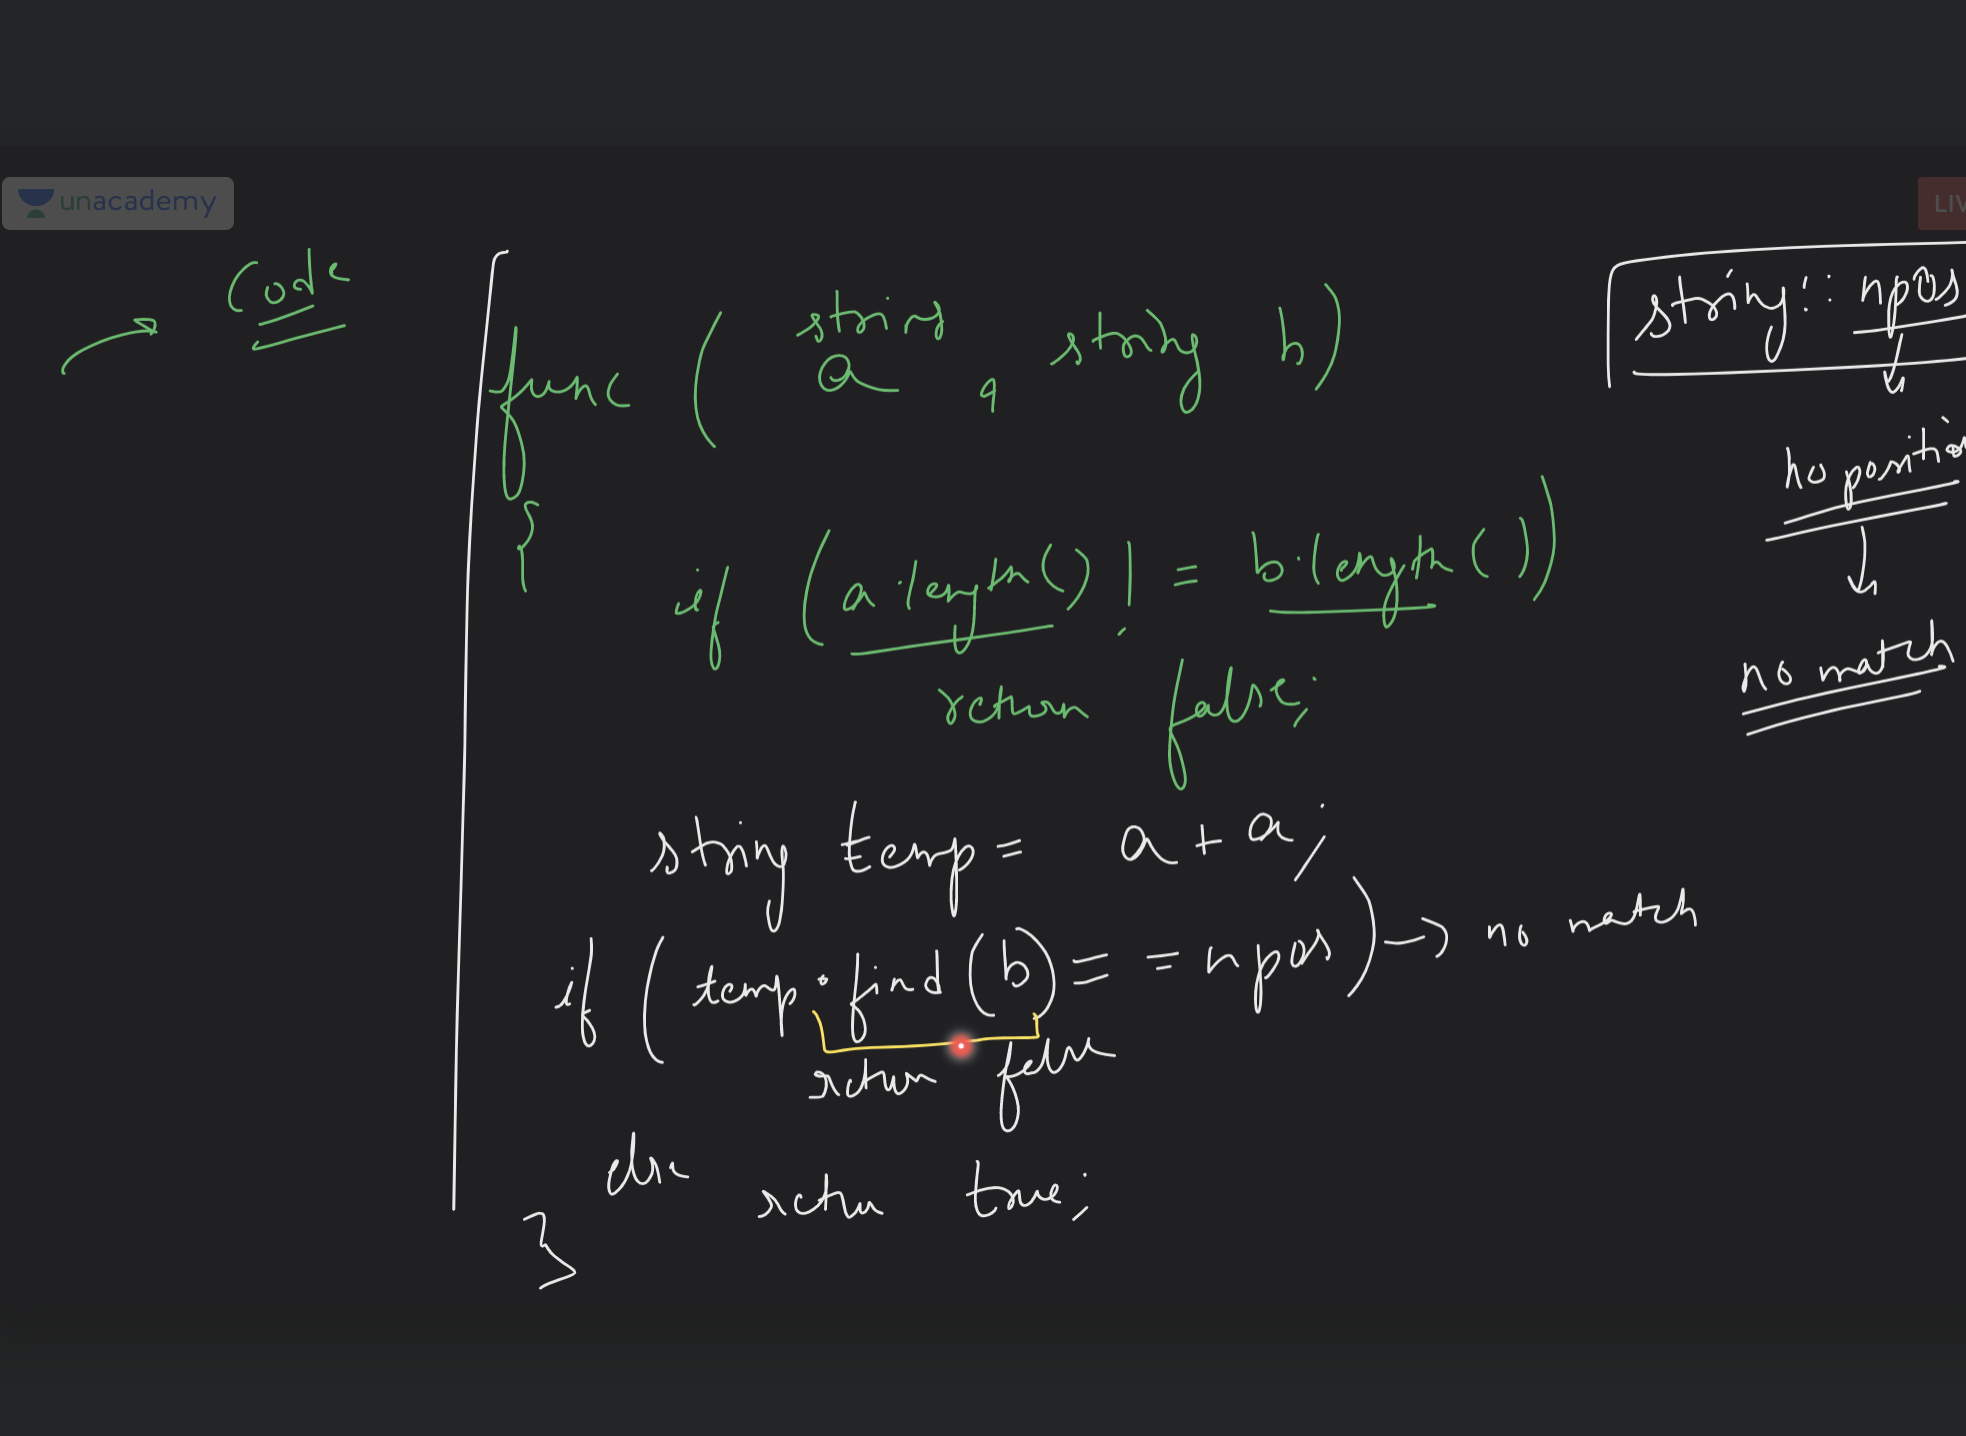 unacademy
LIV
Code
func ( string a , string b )
{
if (a.length() != b.length())
return false;
string temp = a + a;
if (temp.find(b) == npos) → no match
return false
else return true;
}
string:: npos
no position
no match